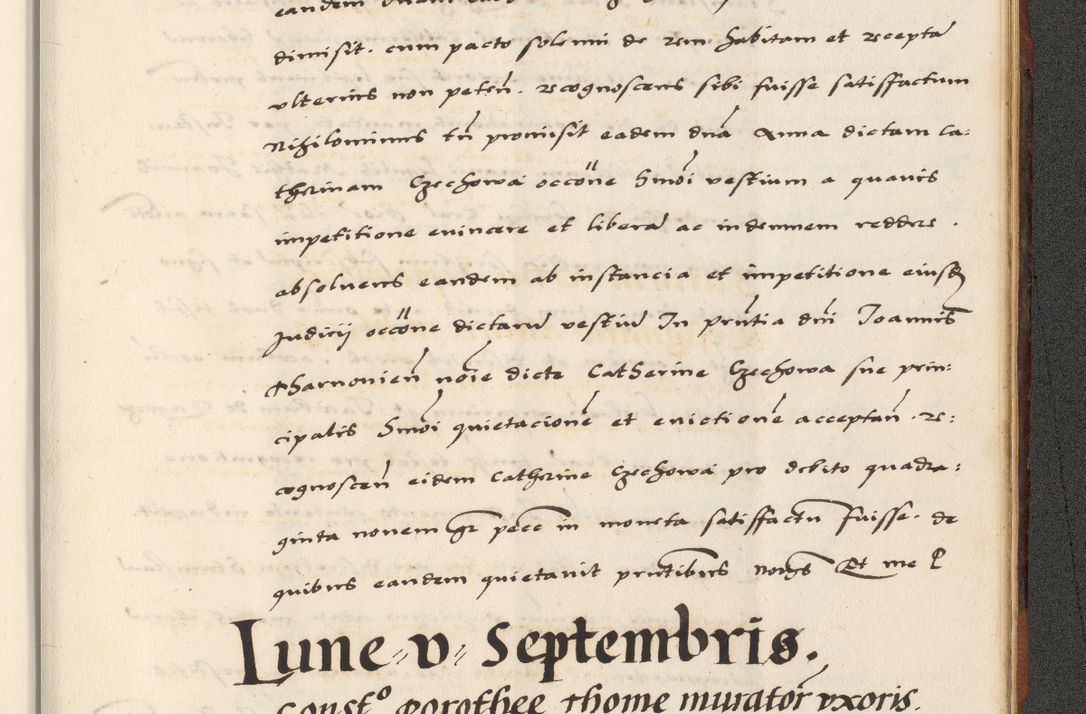 eandem
dimisit. cum pacto solemni de rem habitam et recepta
vlterius non peten̄. recognoscens sibi fuisse satisfactum
Nihilominus tn̄ promisit eadem dnā Anna dictam Ca:
therinam Czechowa occōne hmōi vestium a quauis
impetitione euincere et libera ac indemnem reddere.
absoluens eandem ab instancia et impetitione eiusd
Judicij occōne dictaru vestiu In prn̄tia dnī Joannis
Tharnouien̄ noīe dicte Catherine Czechowa sue prin:
cipalis hmōi quietacione et euictione acceptan̄. re:
cognoscen̄ eidem Catherine Czechowa pro debito quadra:
ginta nouem gr̄ pecc̄ in moneta satisfactu fuisse. de
quibus eandem quietauit prn̄tibus Et me
Lune v Septembris.
Constº Dorothee Thome murator̄ vxoris.